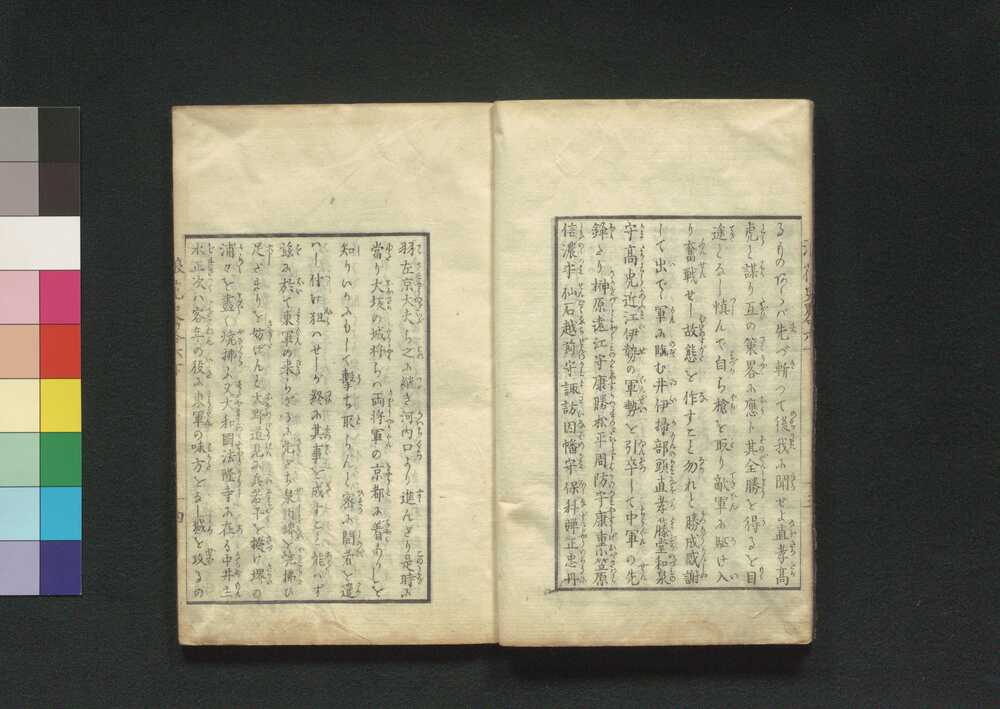 るものあらバ先づ斬つて後我ニ聞せよ直孝高
虎と謀り互の策畧ニ應ト其全勝を得るを目
途とるし慎んで自ら槍を取り敵軍ニ駈け入
り奮戦せし故態を作すこと勿れと勝成感謝
して出でゝ軍ニ臨む井伊掃部頭直孝藤堂和泉
守高虎近江伊勢の軍勢を引卒して中軍の先
鋒とり榊原遠江守康勝松平周防守康重笠原
信濃守仙石越前守諏訪因幡守保科弾正忠丹
羽左京大夫ら之ニ継き河内口より進んどり是時ニ
當り大坂の城将ら両将軍の京都ニ着ありしを
知りいかにもして擊ち取らんと密ニ間者を遣
ハし付け狙ハせしが終ニ其事を成すこと能ハず
於て東軍の来らざるニ先だち泉州堺を焼拂ひ
足だまりを妨げんと大野道見ニ兵若干を授け堺の
浦々を盡く焼拂ふ又大和國法隆寺ニ在る中井
正次ハ客年の役ニ東軍の味方とるし城を攻るの